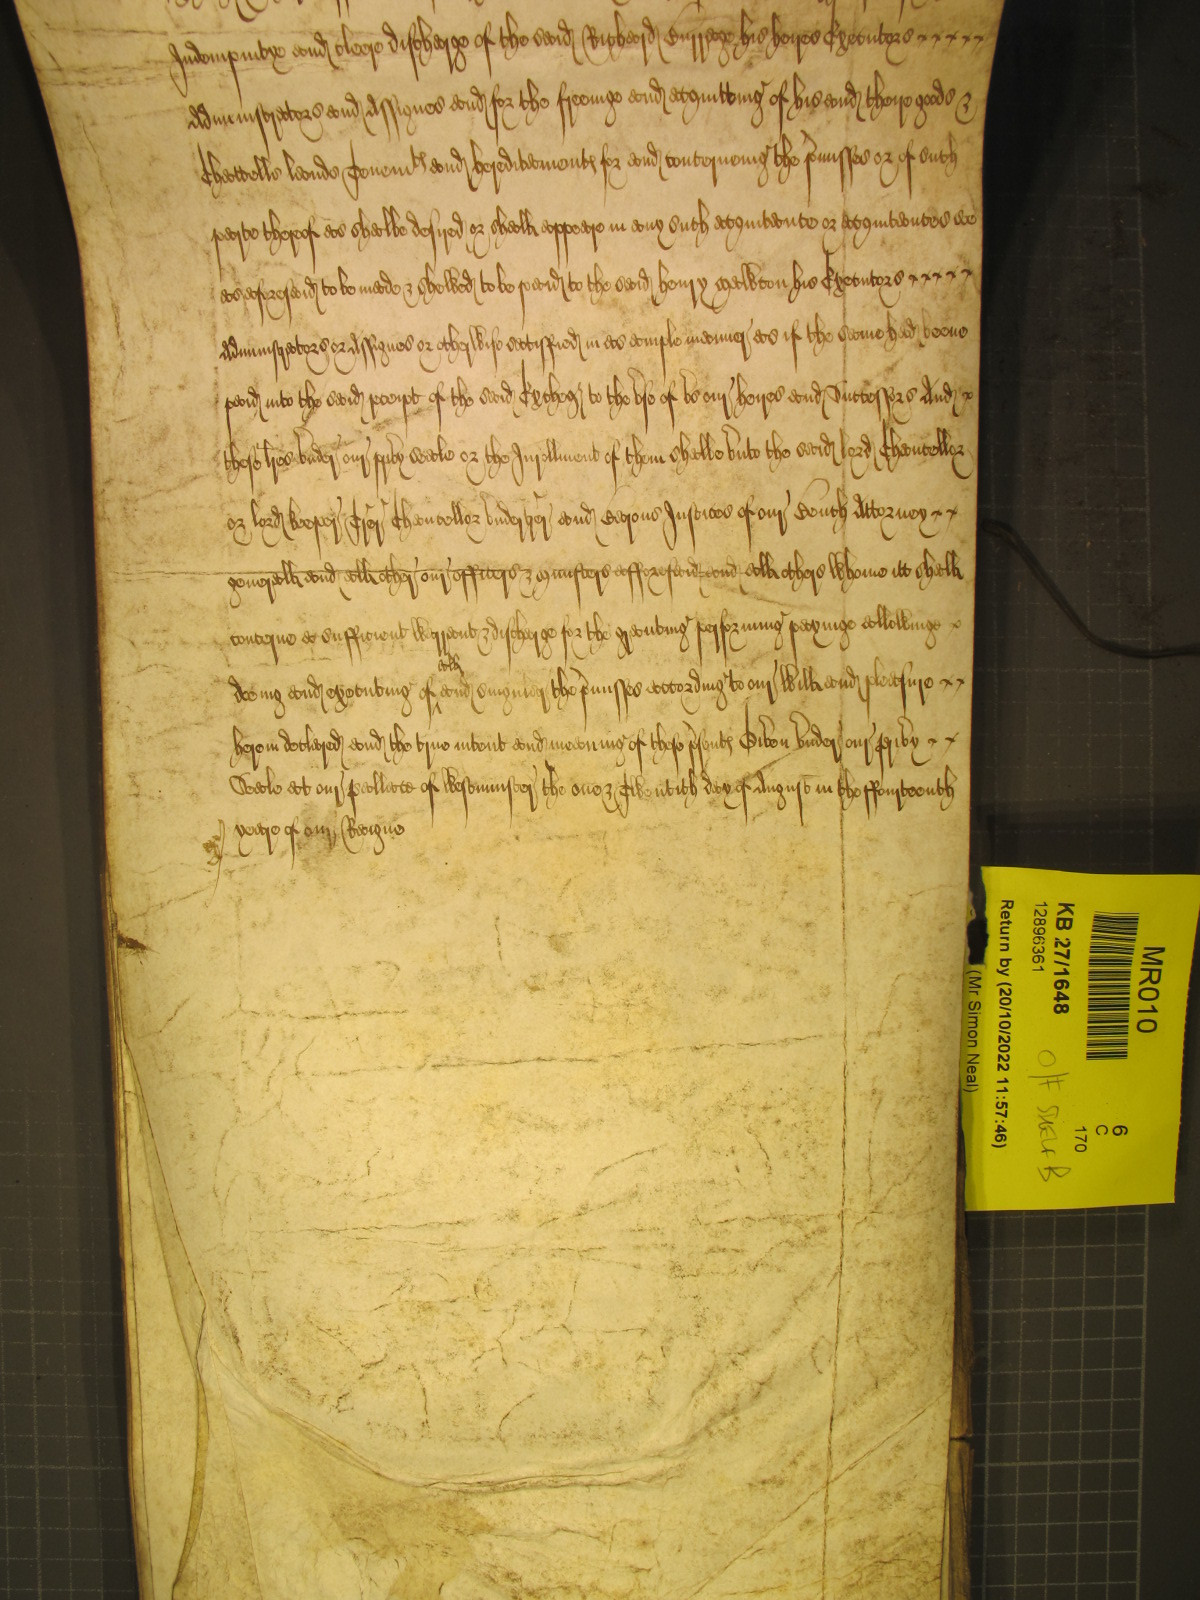 Indempnitye and cleere discharge of the said Richard Burrage his heires Executors
Administrators and Assignes and for the freeinge and acquitting of his and theire goods &
Chattells lands Tenemts and hereditaments for and concerneing the p'misses or of such
parte thereof as shalbe desired or shall appeare in any such acquitance or acquitances soe
as aforesaid to be made & shewed to be paid to the said henry his Executors
Administrators or Assignes or otherwise satisfied in as ample manner as if the same had beene
paid into the said receipt of the said Excheqr to the vse of vs our heires and Successors And
these lres vnder our privy seale or the Inrollment of them shalbe vnto the said lord Chancellor
or lord keeper Trer Chancellor vndertrer and Barons Justices of our Bench Attorney
generall and all other our officers & ministers afforesaid and all others whome itt shall
concerne a sufficient warrant & discharge for the granting performing payinge allowinge
doeing and executing of all and singuler the p'misses according to our will and pleasure
herein declared and the true intent and meaning of these p'sents Given vnder our privy
Seale at our pallace of Westminster the one & Twentith day of August in the ffourteenth
yeare of our Raigne
MR010
6
C
170
KB 27/1648
12896361
Return by (20/10/2022 11:57:46)
(Mr Simon Neal)
O/F SHELF B